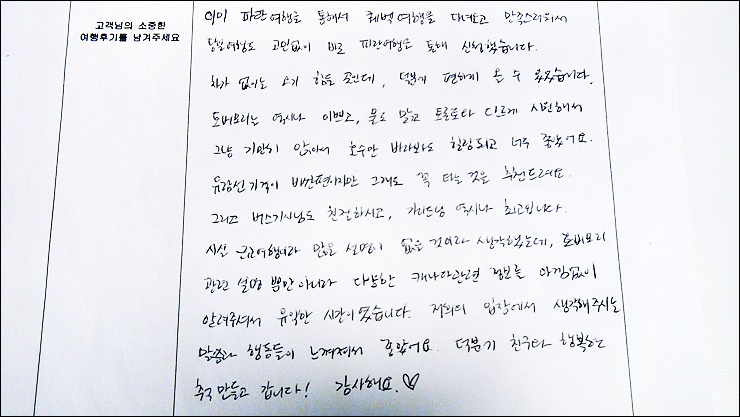 고객님의 소중한
여행후기를 남겨주세요
이미 파란여행을 통해서 퀘벡여행을 다녀오고 만족스러워서
당일여행도 고민없이 바로 파란여행을 통해 신청했습니다.
차가 없이는 오기 힘든 곳인데, 덕분에 편하게 올 수 있었습니다.
토버모리는 역시나 이쁘고, 물도 맑고 토론토와 다르게 시원해서
그냥 가만히 앉아서 호수만 바라봐도 힐링되고 너무 좋았어요.
유람선 가격이 비싼편이지만 그래도 꼭 타는 것을 추천드려요.
그리고 버스기사님도 친절하시고, 가이드님 역시나 최고입니다.
사실 근교여행이라 많은 설명이 없을 것이라 생각했는데, 토버모리
관련 설명 뿐만 아니라 다양한 캐나다관련 정보를 아낌없이
알려주셔서 유익한 시간이었습니다. 저희의 입장에서 생각해주시는
말씀과 행동들이 느껴져서 좋았어요. 덕분에 친구와 행복한
추억 만들고 갑니다! 감사해요.♡